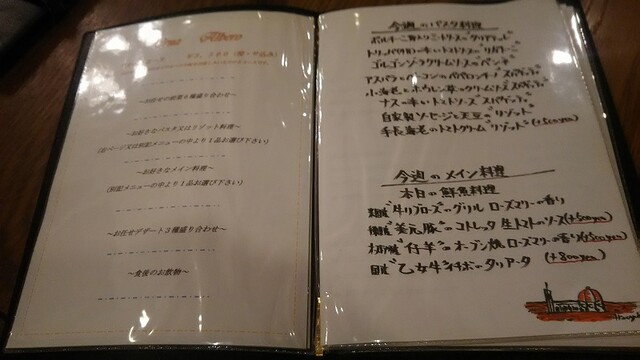 ¥3,500（税・サ込み）
～お任せの前菜6種盛り合わせ～
～お好きなパスタ又はリゾット料理～
(右ページ又は別紙メニューの中より1品お選び下さい)
～お好きなメイン料理～
(別紙メニューの中より1品お選び下さい)
～お任せデザート3種盛り合わせ～
～食後のお飲物～
今週のパスタ料理
ポルチーニ茸のクリームソースの"タリアテッレ"
"リガトーニ"
ゴルゴンゾーラクリームソースの"ペンネ"
アスパラとベーコンのペペロンチーノ"スパゲッティ"
小海老とホウレン草のクリームソース"スパゲッティ"
ナスの辛いトマトソース"スパゲッティ"
自家製ソーセージと天豆の"リゾット"
手長海老のトマトクリーム"リゾット"(+500yen)
今週のメイン料理
本日の鮮魚料理
牛リブロースのグリル ローズマリーの香り
"美元豚"のコトレッタ 生トマトのソース(+500yen)
"仔羊"のオーブン焼 ローズマリーの香り(+500yen)
"乙女牛"イチボのタリアータ (+800yen)